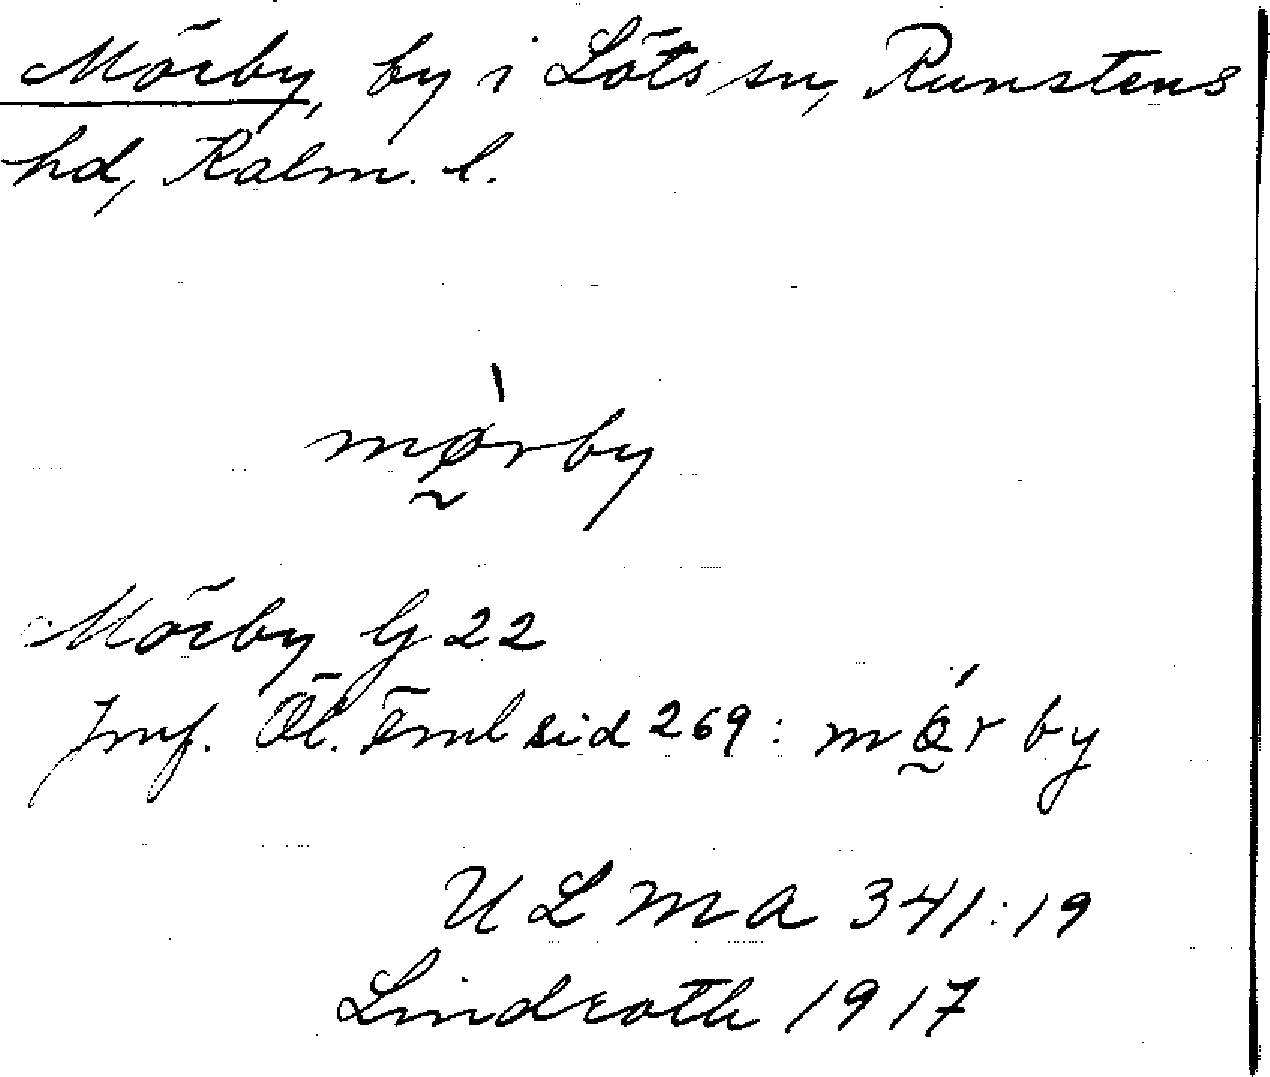 Mörby, by i Löts sn, Runstens
hd, Kalm. l.
mø̀rby
Mörby G 22
Jmf. Öl. Fml sid 269: mǿr by
ULMA 341:19
Lindroth 1917